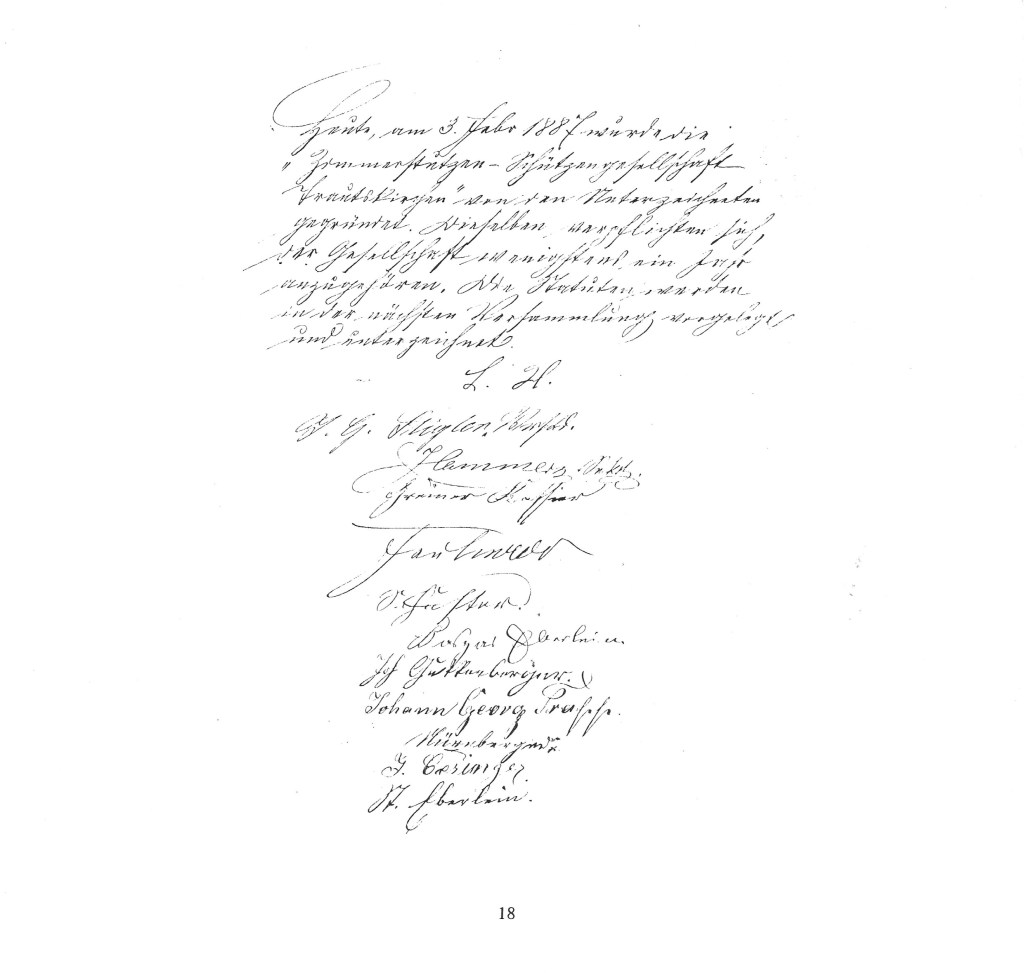 Heute, am 3. Febr 1887 wurde die
"Zimmerstutzen-Schützengesellschaft
Trautskirchen" von den Unterzeichneten
gegründet. Dieselben verpflichten sich,
der Gesellschaft wenigstens ein Jahr
anzugehören. Die Statuten werden
in der nächsten Versammlung vorgelegt
und unterzeichnet.
J. G.
Hammer, Sekr.
Greiner Kassier
Schuster.
Kaspar Eberlein.
Joh Guttenberger.
Johann Georg
Nürnberger
J.
St. Eberlein.
18